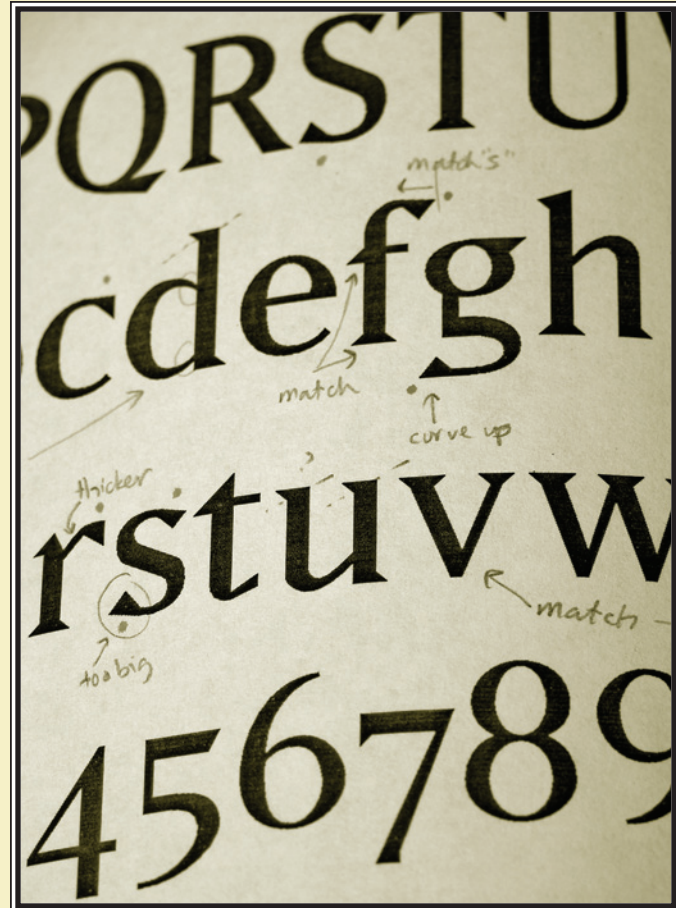 PQRSTU
match "s"
cdefgh
match
curve up
thicker
rstuvw
match
too big
456789